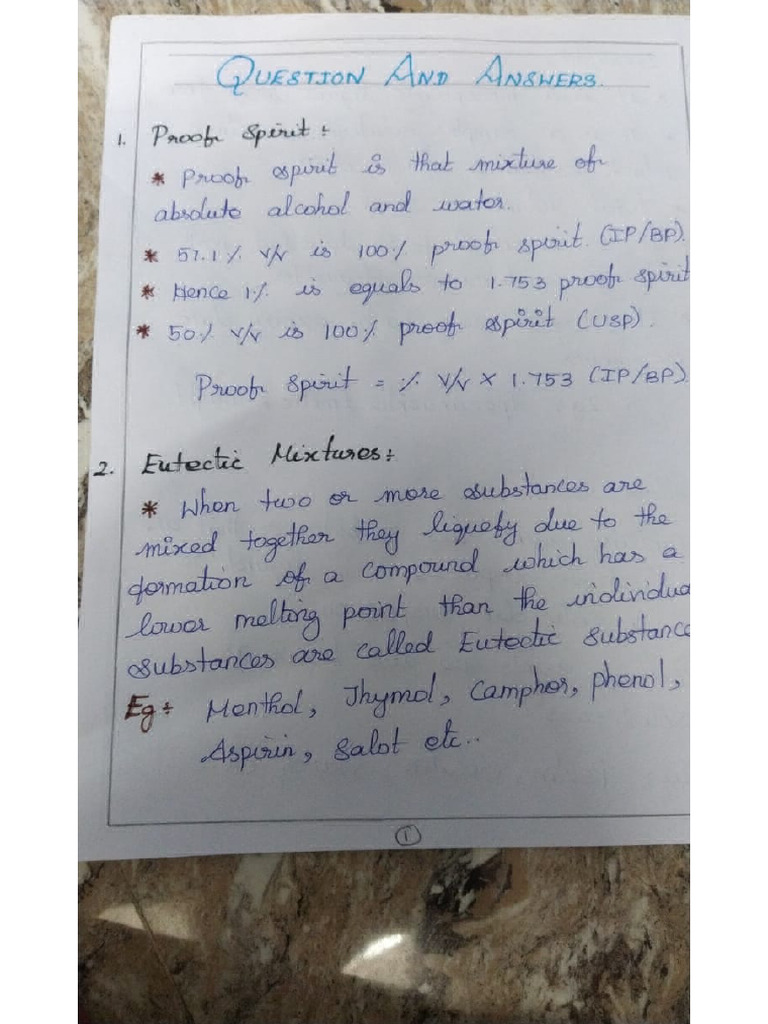 QUESTION AND ANSWERS.
1. Proof Spirit :
* Proof spirit is that mixture of
absolute alcohol and water.
* 57.1% v/v is 100% proof spirit. (IP/BP).
* Hence 1% is equals to 1.753 proof spirit
* 50% v/v is 100% proof spirit (USP).
Proof Spirit = % v/v × 1.753 (IP/BP).
2. Eutectic Mixtures :
* When two or more substances are
mixed together they liquefy due to the
formation of a compound which has a
lower melting point than the individua
substances are called Eutectic Substance
Eg : Menthol, Thymol, Camphor, phenol,
Aspirin, Salot etc..
1